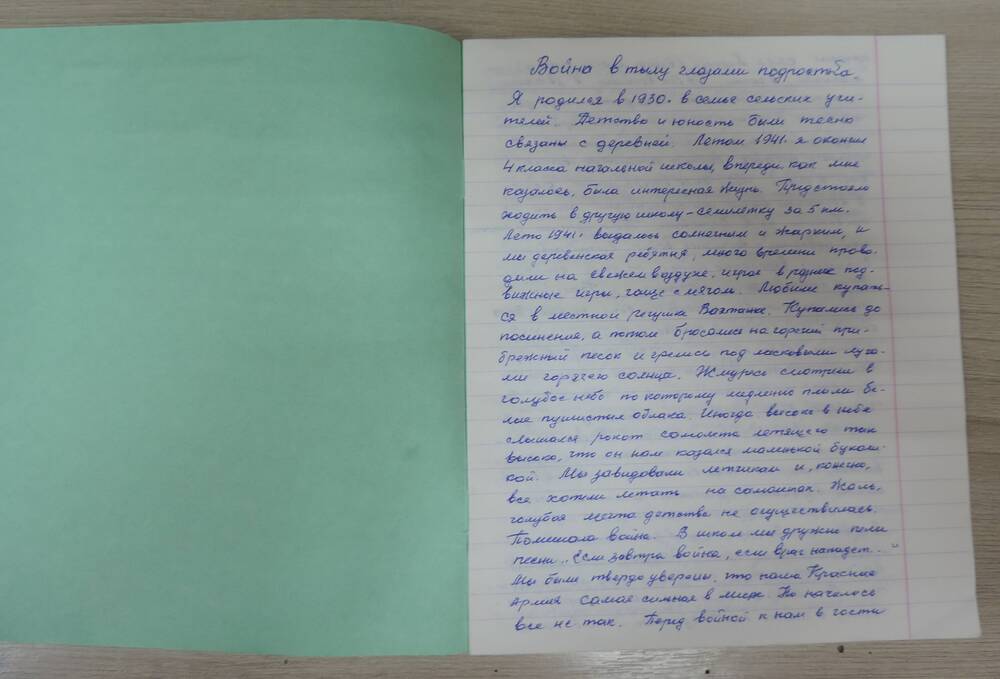 Война в тылу глазами подростка.
Я родился в 1930г. в семье сельских учи-
телей. Детство и юность были тесно
связаны с деревней. Летом 1941г. я окончил
4 класса начальной школы, впереди, как мне
казалось, была интересная жизнь. Предстояло
ходить в другую школу-семилетку за 5 км.
Лето 1941г. выдалось солнечным и жарким, и
мы деревенская ребятня, много времени прово-
дили на свежем воздухе, играя в разные под-
вижные игры, чаще с мячом. Любили купать-
ся в местной речушке Вахтанке. Купались до
посинения, а потом бросались на горячий при-
брежный песок и грелись под ласковыми луча-
ми горячего солнца. Жмурясь смотрели в
голубое небо по которому медленно плыли бе-
лые пушистые облака. Иногда высоко в небе
слышался рокот самолета летящего так
высоко, что он нам казался маленькой букаш-
кой. Мы завидовали летчикам и, конечно,
все хотели летать на самолетах. Жаль,
голубая мечта детства не осуществилась.
Помешала война. В школе мы дружно пели
песни „Если завтра война, если враг нападет."
Мы были твердо уверены, что наша Красная
Армия самая сильная в мире. Но началось
все не так. Перед войной к нам в гости